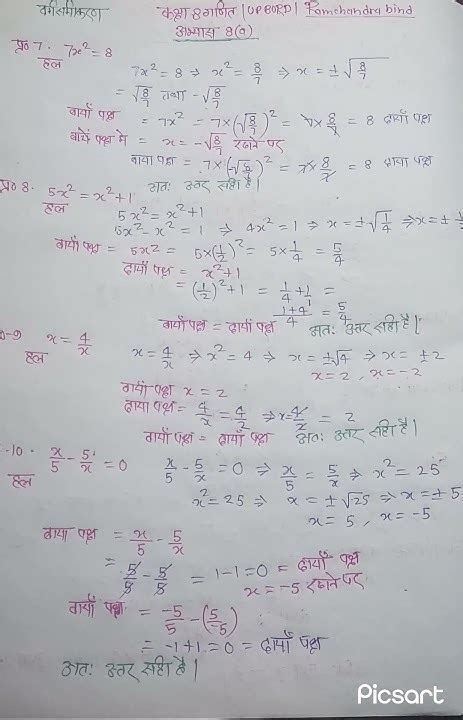 वर्गसमीकरण
कक्षा 8 गणित |UP BORD| Ramchandra bind
अभ्यास 8(a)
प्र० 7· 7x² = 8
हल
7x² = 8 ⇒ x² = 8/7 ⇒ x = ±√8/7
= √8/7 तथा -√8/7
बायाँ पक्ष = 7x² = 7×(√8/7)² = 7×8/7 = 8 दायाँ पक्ष
बायें पक्ष में x = -√8/7 रखने पर
बाया पक्ष = 7×(-√8/7)² = 7×8/7 = 8 दाया पक्ष
अतः उत्तर सही है।
प्र० 8· 5x² = x²+1
हल
5x² = x²+1
5x² - x² = 1 ⇒ 4x² = 1 ⇒ x = ±√1/4 ⇒ x = ±
बायाँ पक्ष = 5x² = 5×(1/2)² = 5×1/4 = 5/4
दायाँ पक्ष = x²+1
= (1/2)²+1 = 1/4+1/1 =
1+4/4 = 5/4
बायाँ पक्ष = दायाँ पक्ष अतः उत्तर सही है।
-9 x = 4/x
हल
x = 4/x ⇒ x² = 4 ⇒ x = ±√4 ⇒ x = ±2
x = 2, x = -2
बायाँ पक्ष x = 2
दाया पक्ष = 4/x = 4/2 ⇒ x = 4/2 = 2
बायाँ पक्ष = दायाँ पक्ष अतः उत्तर सही है।
-10· x/5 - 5/x = 0
हल
x/5 - 5/x = 0 ⇒ x/5 = 5/x ⇒ x² = 25
x² = 25 ⇒ x = ±√25 ⇒ x = ±5
x = 5, x = -5
बाया पक्ष = x/5 - 5/x
= 5/5 - 5/5 = 1-1 = 0 = दायाँ पक्ष
x = -5 रखने पर
बायाँ पक्ष = -5/5 - (5/-5)
= -1+1 = 0 = दायाँ पक्ष
अतः उत्तर सही है।
Picsart